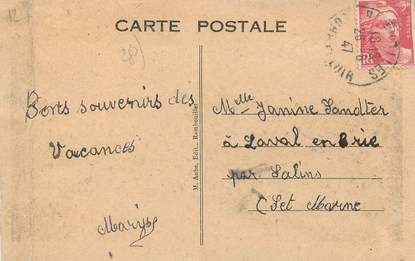 12
CARTE POSTALE
28)
Bons souvenirs des
Vacances
Maryse
M. Aubn, Edit., Rambouillet
Melle Janine Sandter
à Laval en Brie
par Salins
(Set Marine
RF
47